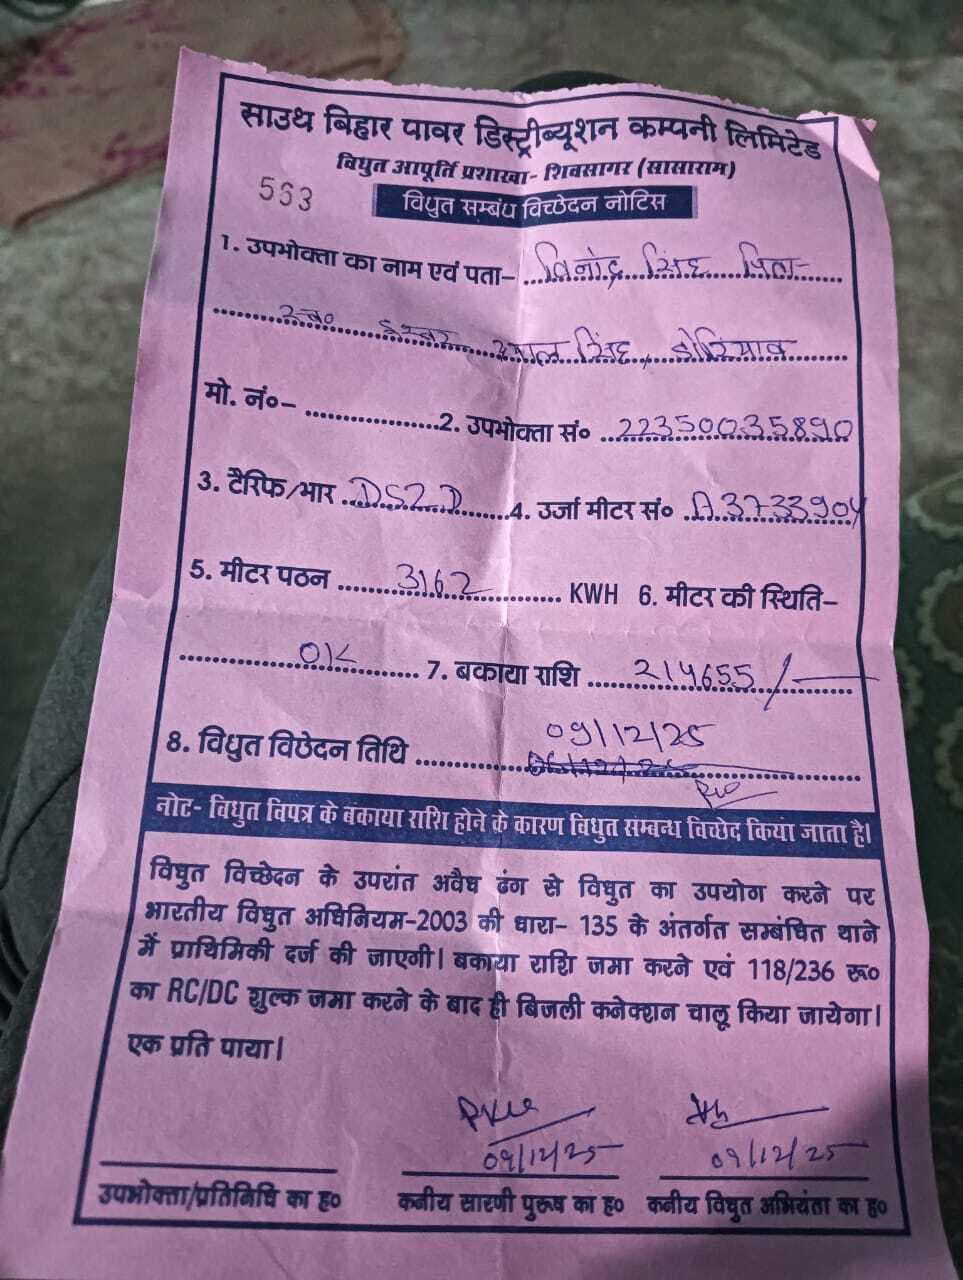 साउथ बिहार पावर डिस्ट्रीब्यूशन कम्पनी लिमिटेड
विधुत आपूर्ति प्रशाखा- शिवसागर (सासाराम)
563
विधुत सम्बंध विच्छेदन नोटिस
1. उपभोक्ता का नाम एवं पता- विनोद सिंह पिता-
स्व० ईश्वर दयाल सिंह,
मो. नं०- 2. उपभोक्ता सं० 223500035890
3. टैरिफ/भार DS2D 4. उर्जा मीटर सं० A3733904
5. मीटर पठन 3162 KWH 6. मीटर की स्थिति-
OK 7. बकाया राशि 214655/-
09/12/25
8. विधुत विछेदन तिथि
नोट- विधुत विपत्र के बकाया राशि होने के कारण विधुत सम्बन्ध विच्छेद किया जाता है।
विधुत विच्छेदन के उपरांत अवैध ढंग से विधुत का उपयोग करने पर
भारतीय विधुत अधिनियम-2003 की धारा- 135 के अंतर्गत सम्बंधित थाने
में प्राथिमिकी दर्ज की जाएगी। बकाया राशि जमा करने एवं 118/236 रू०
का RC/DC शुल्क जमा करने के बाद ही बिजली कनेक्शन चालू किया जायेगा।
एक प्रति पाया।
09/12/25 09/12/25
उपभोक्ता/प्रतिनिधि का ह० कनीय सारणी पुरूष का ह० कनीय विधुत अभियंता का ह०